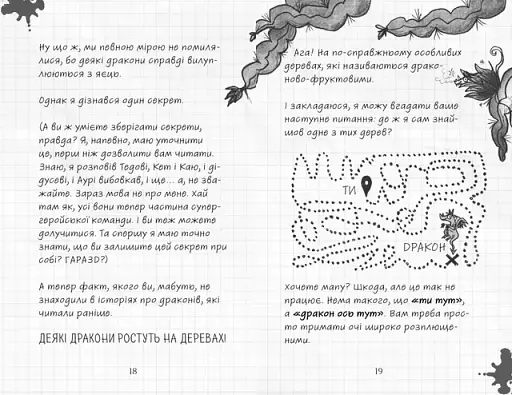 Ну що ж, ми певною мірою не помиля-
лися, бо деякі дракони справді вилуп-
люються з яєць.
Однак я дізнався один секрет.
(А ви ж умієте зберігати секрети,
правда? Я, напевно, маю уточнити
це, перш ніж дозволити вам читати.
Знаю, я розповів Тедові, Кет і Каю, і ді-
дусеві, і Аурі вибовкав, і ще... а, не зва-
жайте. Зараз мова не про мене. Хай
там як, усі вони тепер частина супер-
геройської команди. І ви теж можете
долучитися. Та спершу я маю точно
знати, що ви залишите цей секрет при
собі? ГАРАЗД?)
А тепер факт, якого ви, мабуть, не
знаходили в історіях про драконів, які
читали раніше.
ДЕЯКІ ДРАКОНИ РОСТУТЬ НА ДЕРЕВАХ!
18
Ага! На по-справжньому особливих
деревах, які називаються драко-
ново-фруктовими.
І закладаюся, я можу вгадати ваше
наступне питання: де ж я сам знай-
шов одне з тих дерев?
ТИ
ДРАКОН
Хочете мапу? Шкода, але це так не
працює. Нема такого, що «ти тут»,
а «дракон ось тут». Вам треба прос-
то тримати очі широко розплюще-
ними.
19